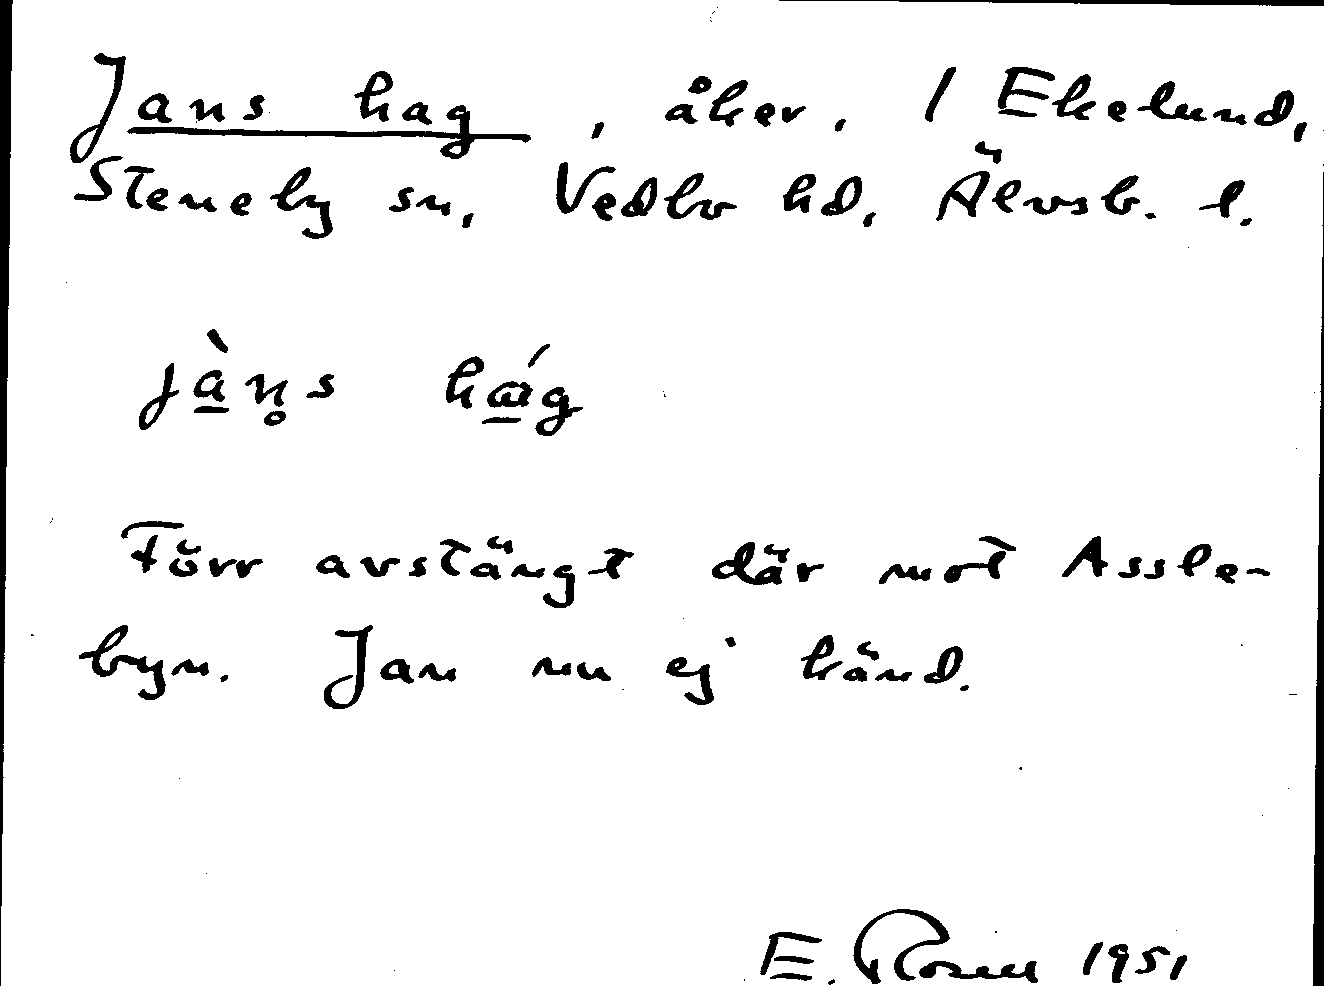 Jans hag, åker, / Ekelund,
Steneby sn, Vedbo hd, Älvsb. l.
jа̀n̥s hɑ́g
Förr avstängt där mot Assle-
byn. Jan nu ej känd.
E. Rosell 1951